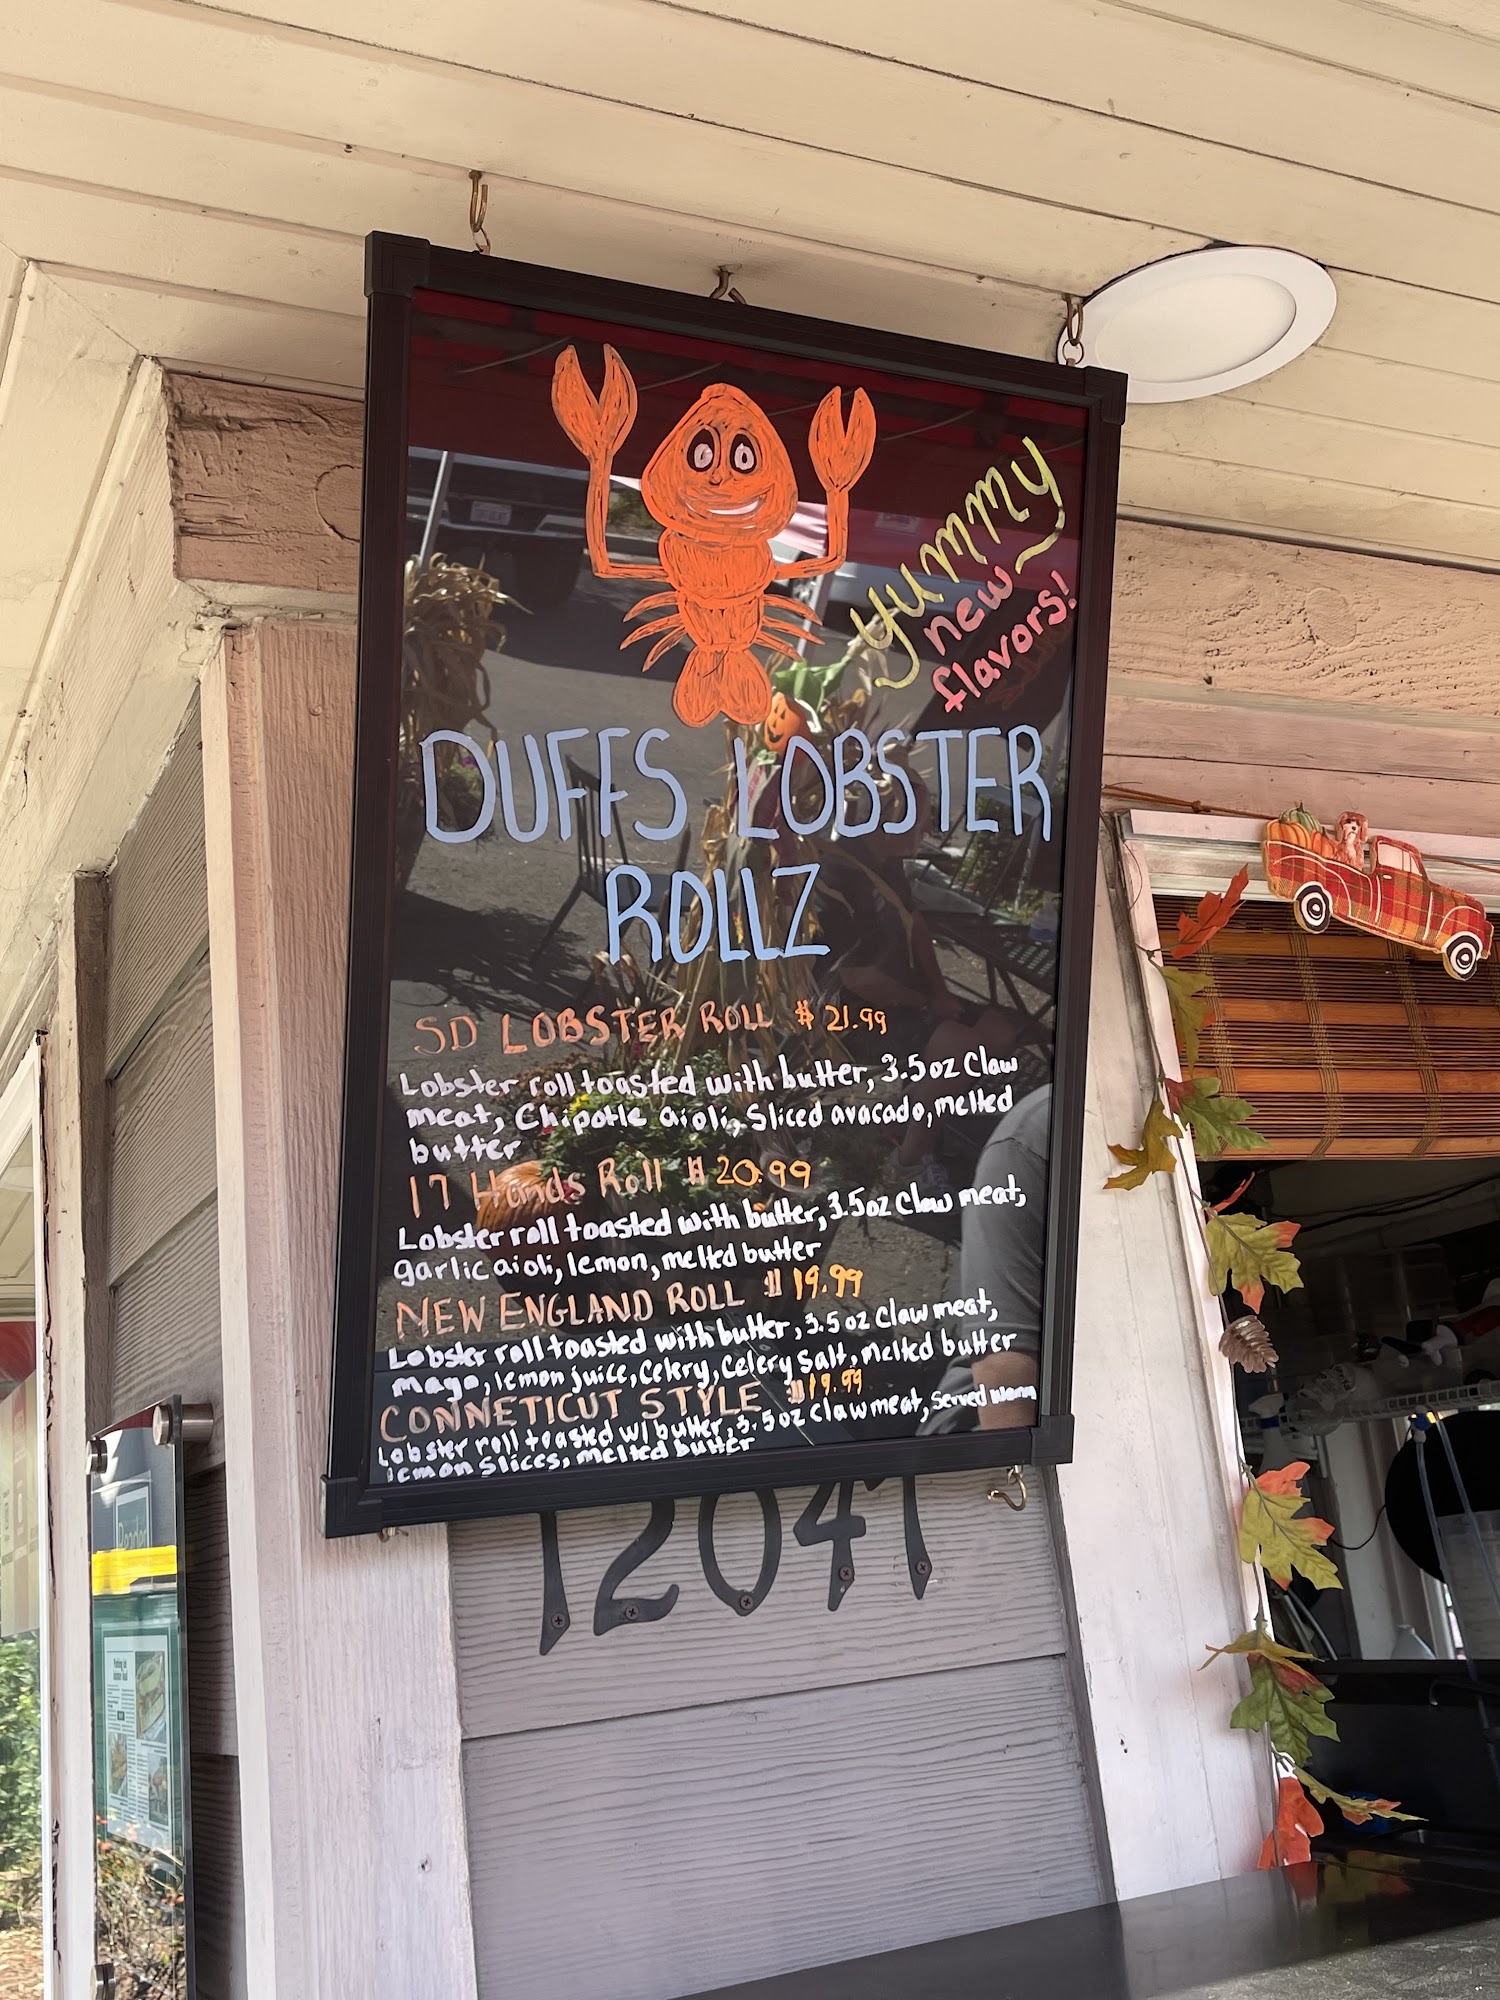 yummy
new
flavors!
DUFFS LOBSTER
ROLLZ
SD LOBSTER ROLL $21.99
Lobster roll toasted with butter, 3.5oz Claw
meat, Chipotle aioli, Sliced avacado, melted
butter
17 Hands Roll $20.99
Lobster roll toasted with butter, 3.5oz Claw meat,
garlic aioli, lemon, melted butter
NEW ENGLAND ROLL $19.99
Lobster roll toasted with butter, 3.5oz Claw meat,
mayo, lemon juice, Celery, Celery Salt, melted butter
CONNETICUT STYLE $19.99
Lobster roll toasted w/ butter, 3.5oz Claw meat, Served warm
lemon slices, melted butter
12041